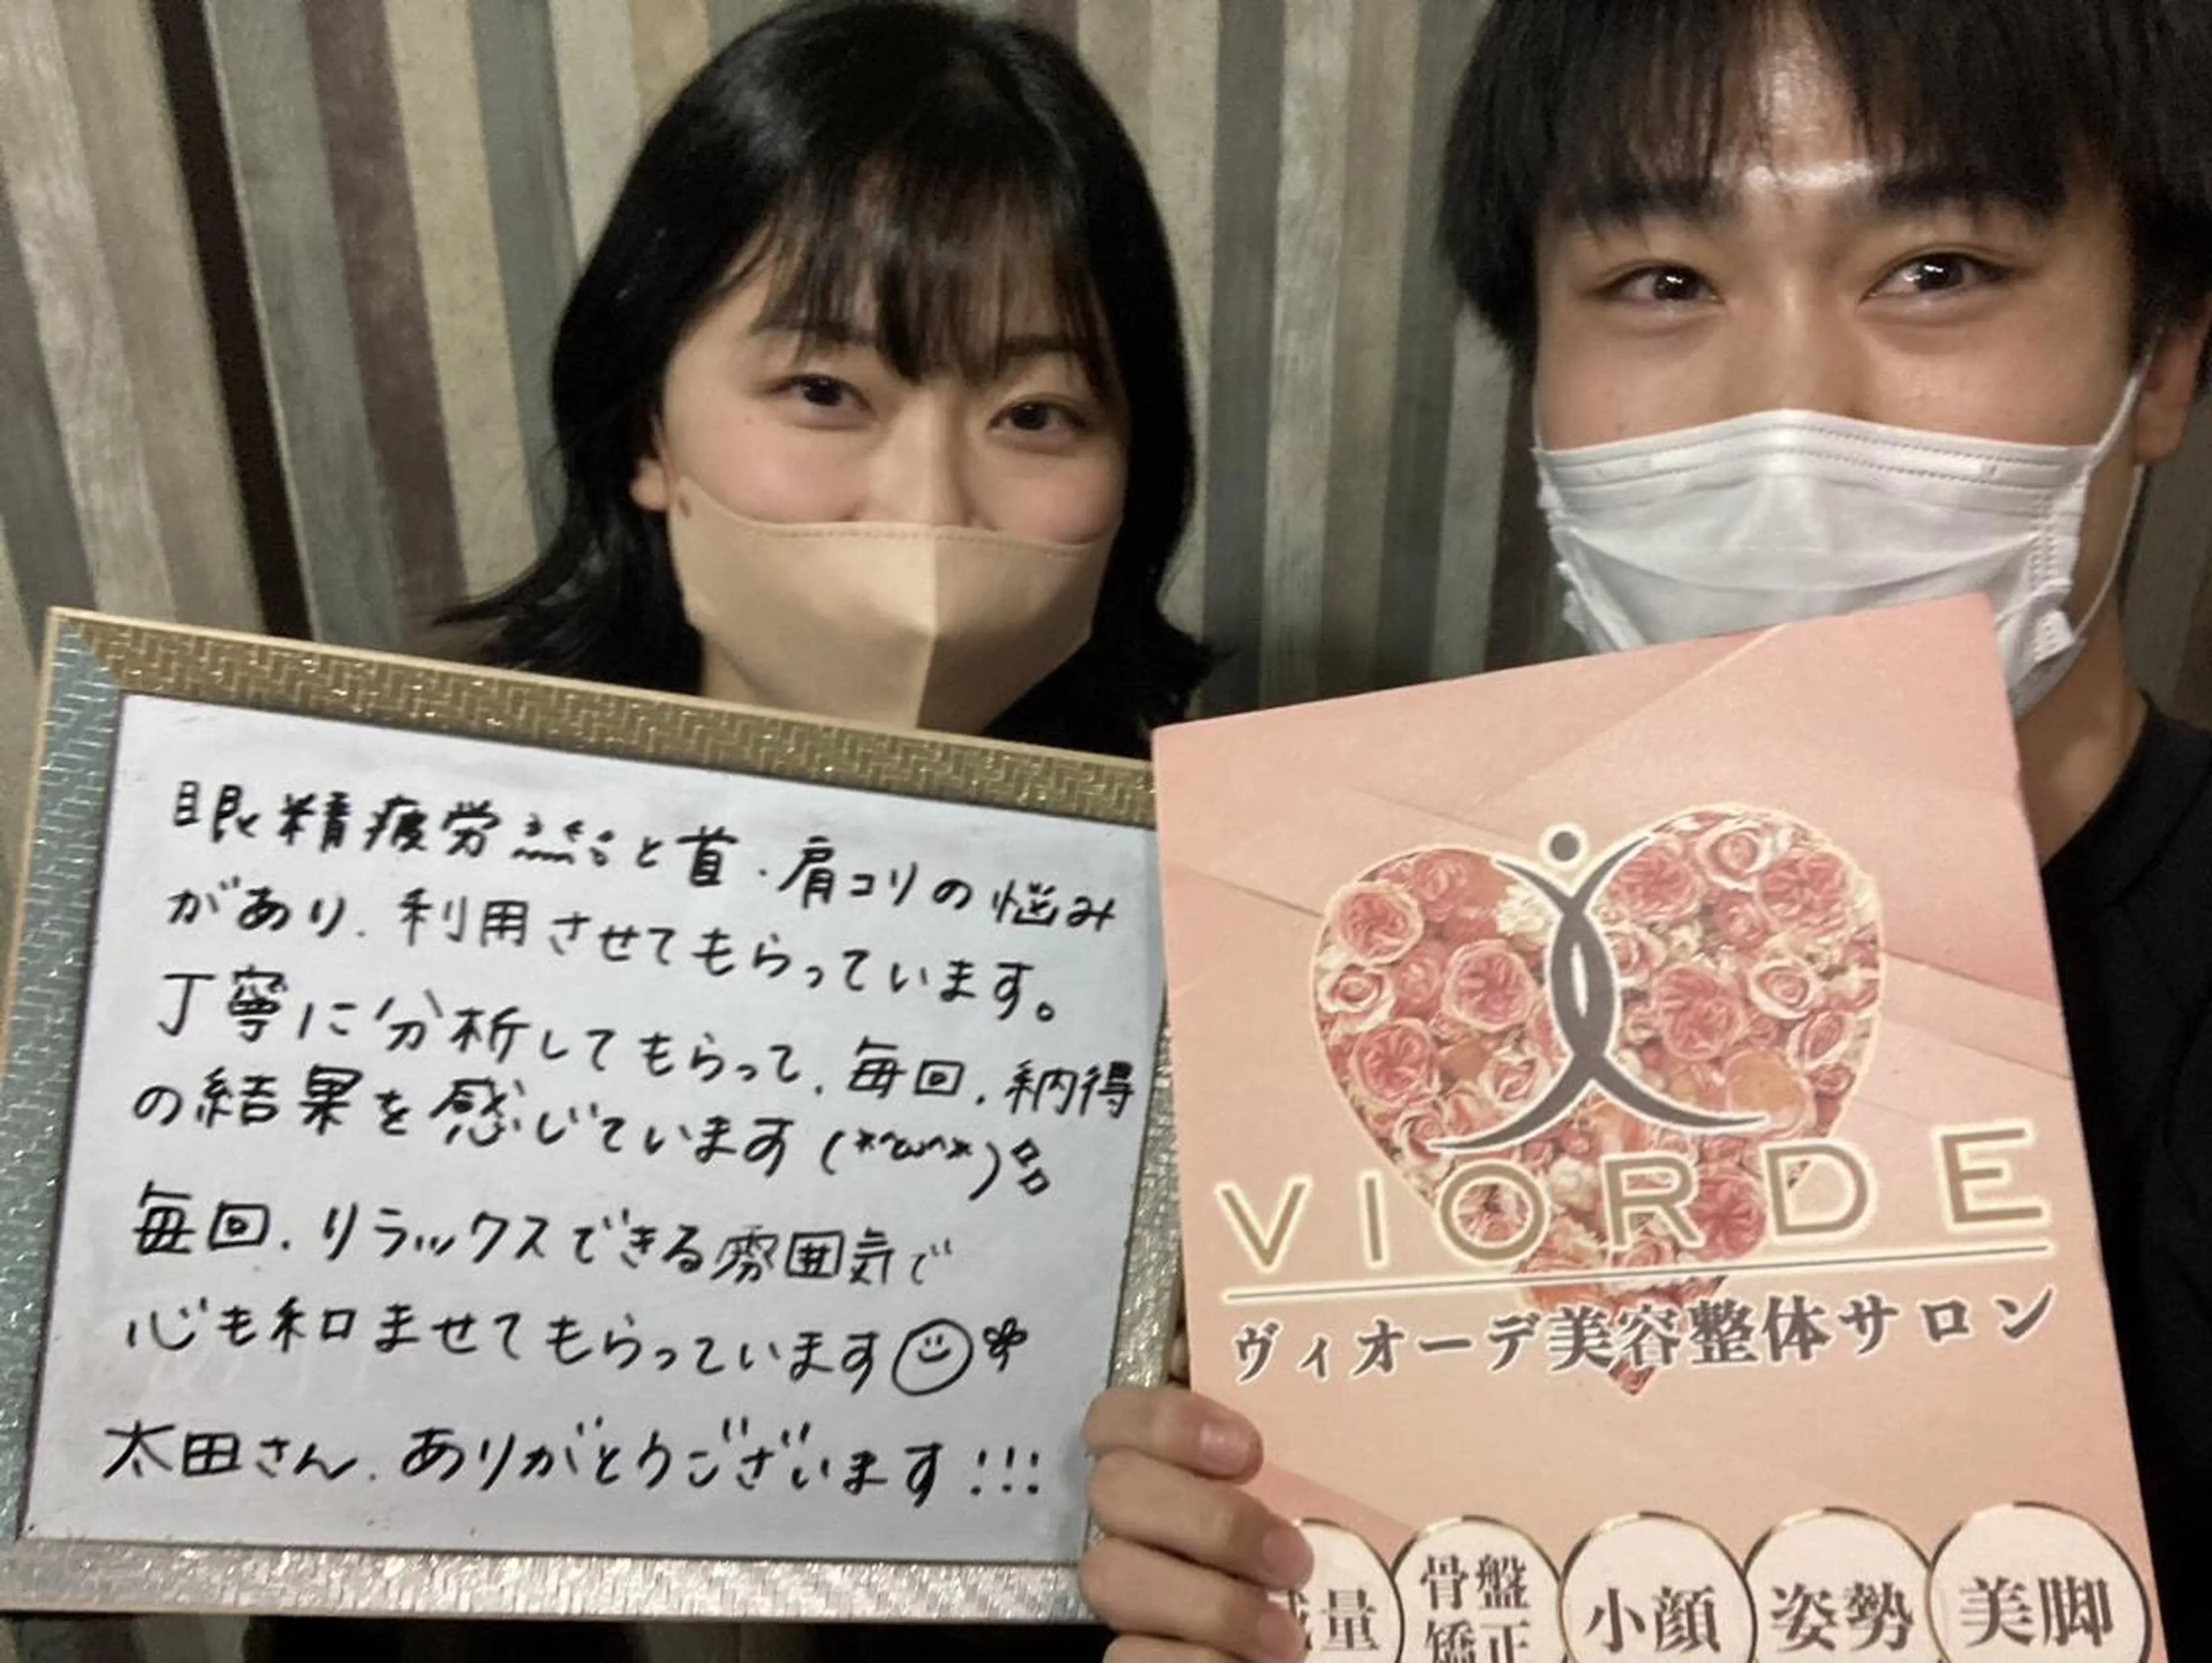 眼精疲労と首・肩コリの悩み
があり、利用させてもらっています。
丁寧に分析してもらって、毎回、納得
の結果を感じています(*^ω^*)
毎回、リラックスできる雰囲気で
心も和ませてもらっています
太田さん、ありがとうございます!!!
VIORDE
ヴィオーデ美容整体サロン
減量
骨盤
矯正
小顔
姿勢
美脚